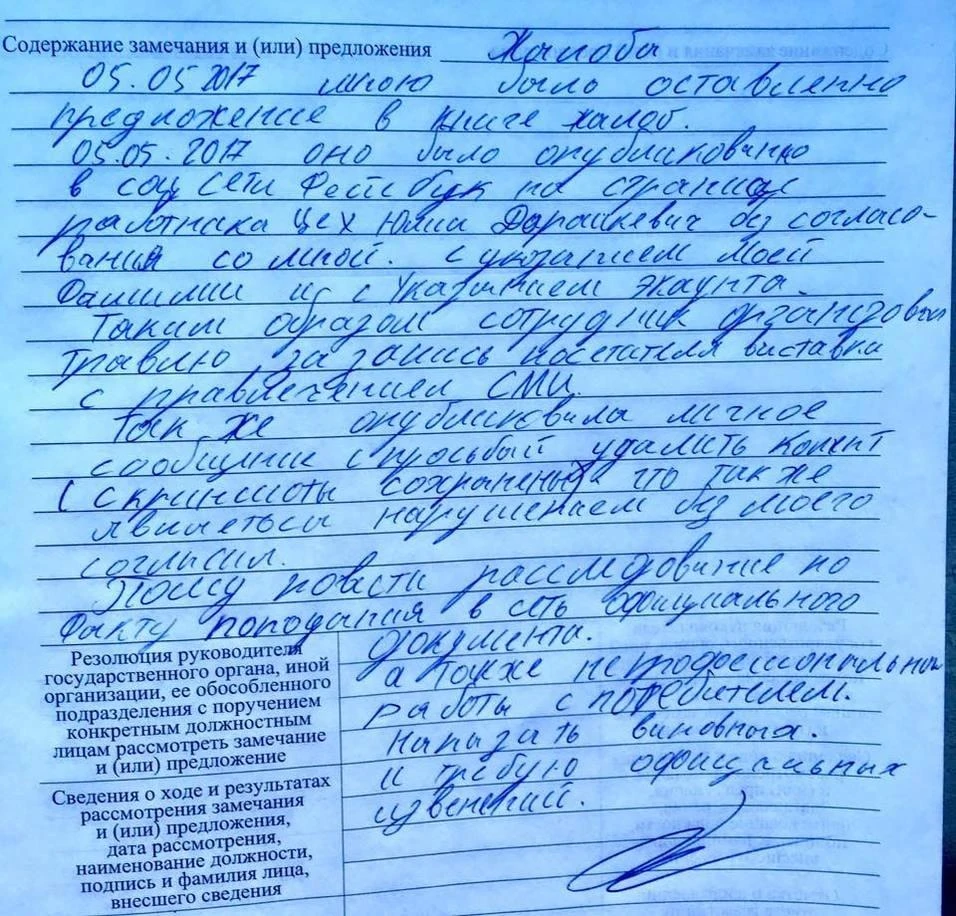 Содержание замечания и (или) предложения Жалоба
05.05 2017 мною было оставленно
предложение в книге жалоб.
05.05.2017 оно было опубликованно
в соц сети Фейсбук на странице
работника ЦЕХ Юлии Дорашкевич без согласо-
вания со мной. с указанием моей
Фамилии и с Указанием экаунта.
Таким образом сотрудник организовал
травлю, за запись посетителя выставки
с правлечением СМИ.
Так же опубликовала личное
сообщение с просьбый удалить контент
(скриншоты сохраненны) что также
являеться нарушением без моего
согласия.
Прошу повести расследование по
Факту поподания в сеть официального
документа.
а также непрофессиональной
работы с потребителем.
Наказать виновных.
и требую официальных
извенений.
Резолюция руководителя
государственного органа, иной
организации, ее обособленного
подразделения с поручением
конкретным должностным
лицам рассмотреть замечание
и (или) предложение
Сведения о ходе и результатах
рассмотрения замечания
и (или) предложения,
дата рассмотрения,
наименование должности,
подпись и фамилия лица,
внесшего сведения